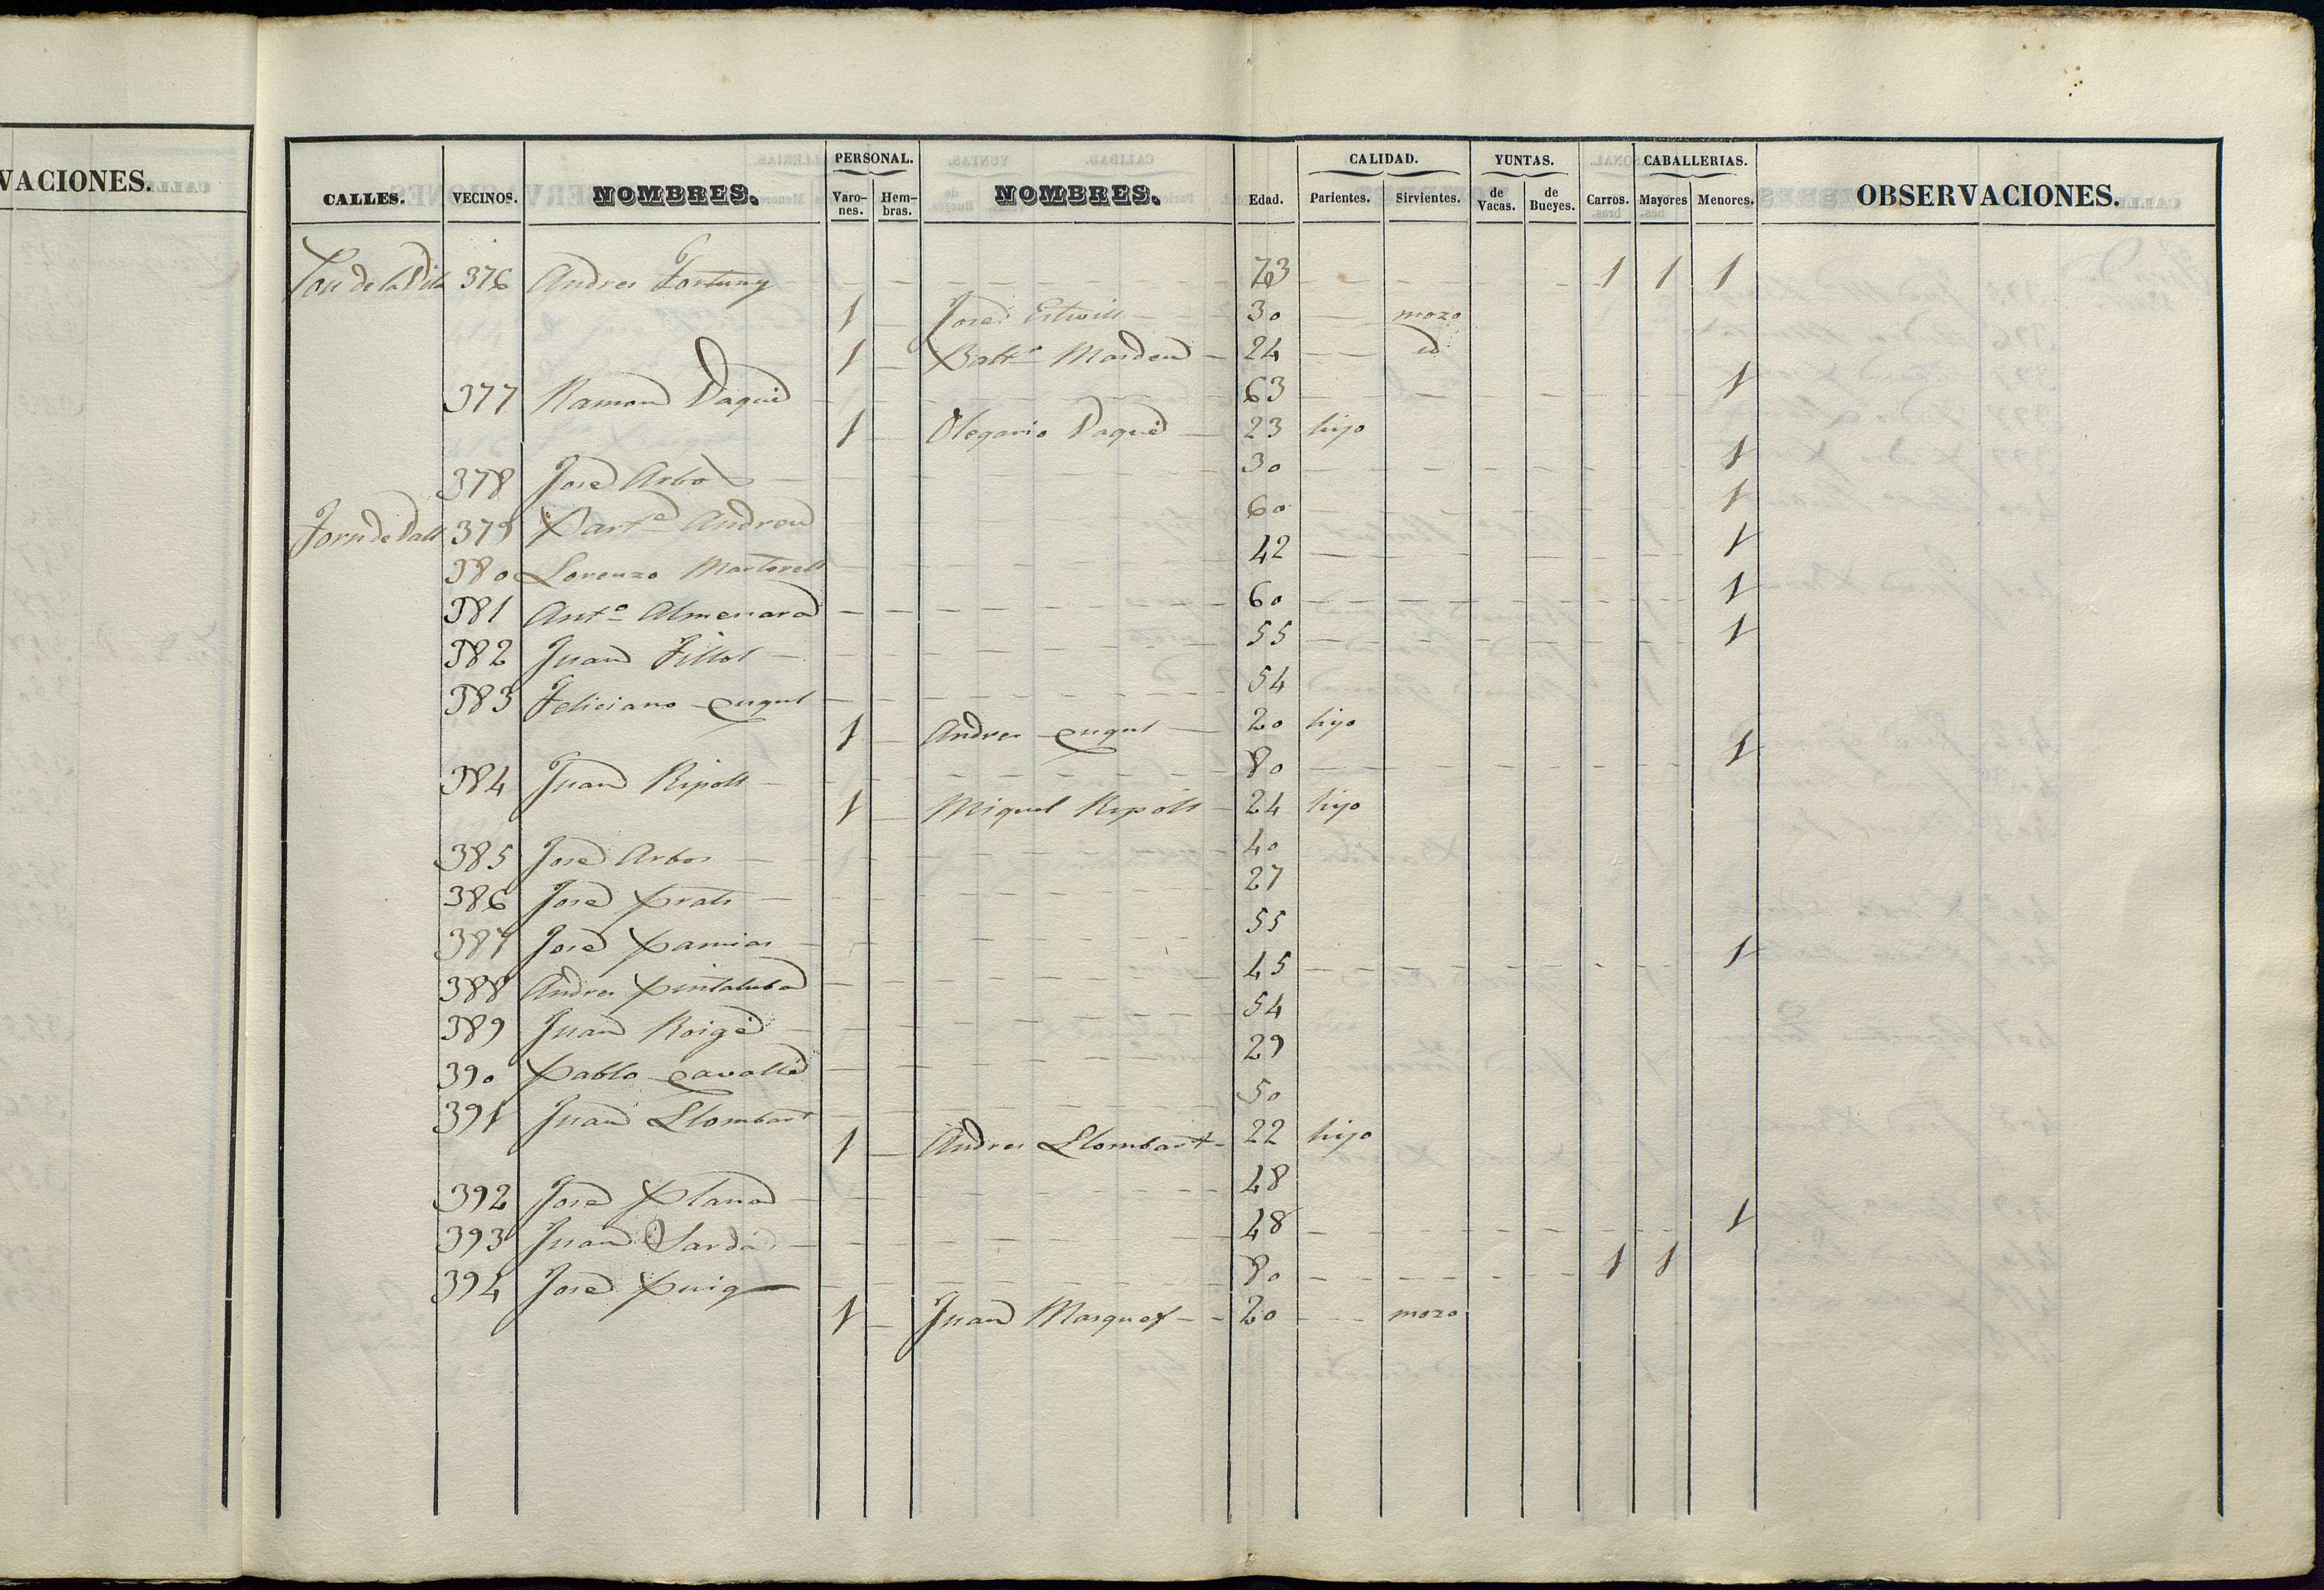 VACIONES.
PERSONAL. CALIDAD. YUNTAS. CABALLERIAS.
CALLES. VECINOS. NOMBRES. Varones. Hembras. NOMBRES. Edad. Parientes. Sirvientes. de Vacas. de Bueyes. Carros. Mayores Menores. OBSERVACIONES.
376 Andres Fortuny 73 1 1 1
1 José 30 mozo
1 24 id
377 Ramon Paqué 63 1
1 Olegario Paqué 23 hijo
378 José Arbos 30 1
Forn de Dalt 379 Andreu 60 1
380 Lorenzo Martorell 42 1
381 Antº Almenara 60 1
382 Juan Fillol 55 1
383 Feliciano Cugul 54
1 Andres Cugul 20 hijo
384 Juan Ripoll 80 1
1 Miguel Ripoll 24 hijo
385 José Arbos 40
386 José Prats 27
387 José Pamias 55
388 Andres Pintaluba 45 1
389 Juan Roigé 54
390 Pablo Cavallé 29
391 Juan Llombart 50
1 Andres Llombart 22 hijo
392 José Plana 48
393 Juan Sardá 48 1
394 José Puig 80 1 1
1 Juan Marques 20 mozo